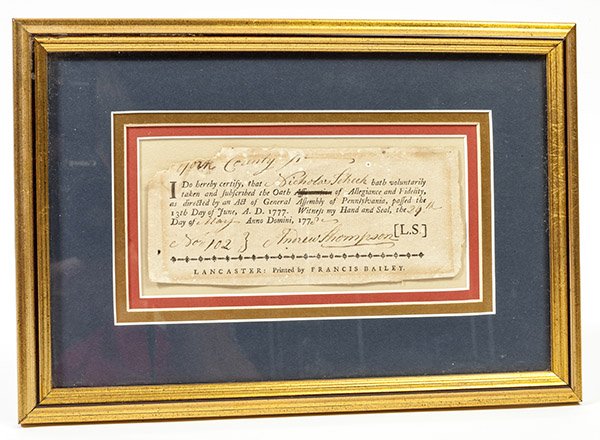 York County ss
I Do hereby certify, that Nicholas Schick hath voluntarily
taken and subscribed the Oath Affirmation of Allegiance and Fidelity,
as directed by an Act of General Assembly of Pennsylvania, passed the
13th Day of June, A. D. 1777. Witness my Hand and Seal, the 29th
Day of May Anno Domini, 177
No 102 } Andrew Thompson [L.S.]
LANCASTER: Printed by FRANCIS BAILEY.